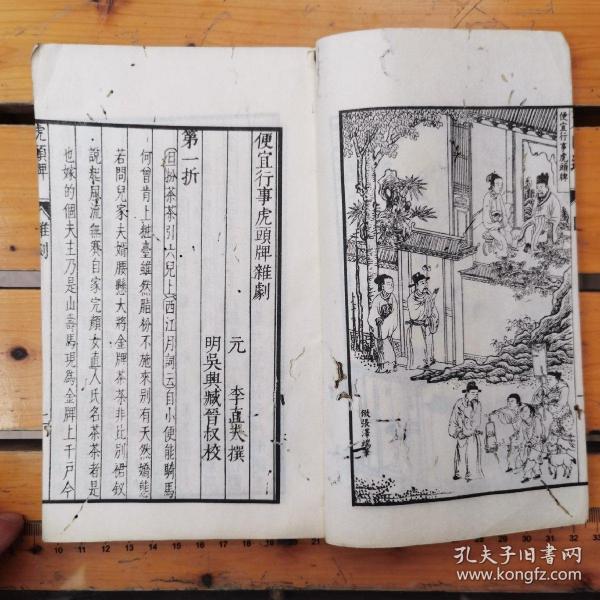 便宜行事虎頭牌
倣張澤端筆
便宜行事虎頭牌雜劇
元 李直夫撰
明吳興臧晉叔校
第一折
旦扮茶茶引六兒上西江月詞云自小便能騎馬
何曾肯上粧臺雖然脂粉不施來別有天然嬌態
若問兒家夫婿腰懸大將金牌茶茶非比別裙釵
說起風流無賽自家完顏女直人氏名茶茶者是
也嫁的個夫主乃是山壽馬現為金牌上千戶今
虎頭牌
雜劇
孔夫子旧书网
www.kongfz.com
10 11 12 13 14 15 16 17 18 19 20 21 22 23 24 25 26 27 28 29 30 31 32 33